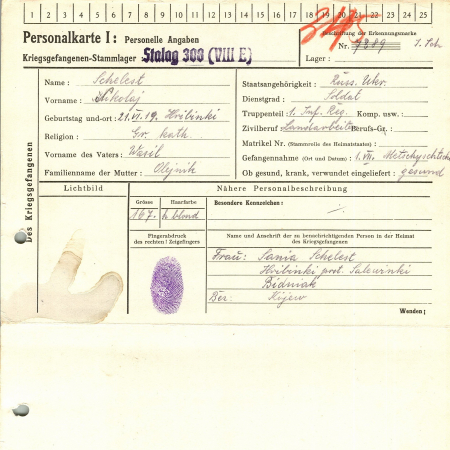 1 2 3 4 5 6 7 8 9 10 11 12 13 14 15 16 17 18 19 20 21 22 23 24 25
Personalkarte I: Personelle Angaben
Kriegsgefangenen-Stammlager Stalag 308 (VIII E)
Beschriftung der Erkennungsmarke
Nr. 7389
Lager:
Des Kriegsgefangenen
Name: Schelest
Vorname: Nikolaj
Geburtstag und-ort: 21.VI.19. Hribinki
Religion: Gr. kath.
Vorname des Vaters: Wasil
Familienname der Mutter: Olejnik
Staatsangehörigkeit: Russ. Ukr.
Dienstgrad: Soldat
Truppenteil: 1. Inf. Reg. Komp. usw.:
Zivilberuf: Landarbeiter Berufs-Gr.:
Matrikel Nr. (Stammrolle des Heimatstaates):
Gefangennahme (Ort und Datum): 1.VIII.
Ob gesund, krank, verwundet eingeliefert: gesund
Lichtbild
Nähere Personalbeschreibung
Grösse
Haarfarbe
Besondere Kennzeichen:
167. h. blond
Fingerabdruck
des rechten! Zeigefingers
Name und Anschrift der zu benachrichtigenden Person in der Heimat
des Kriegsgefangenen
Frau: Sania Schelest
Hribinki
Bidniak
Ber: Kijew
Wenden;